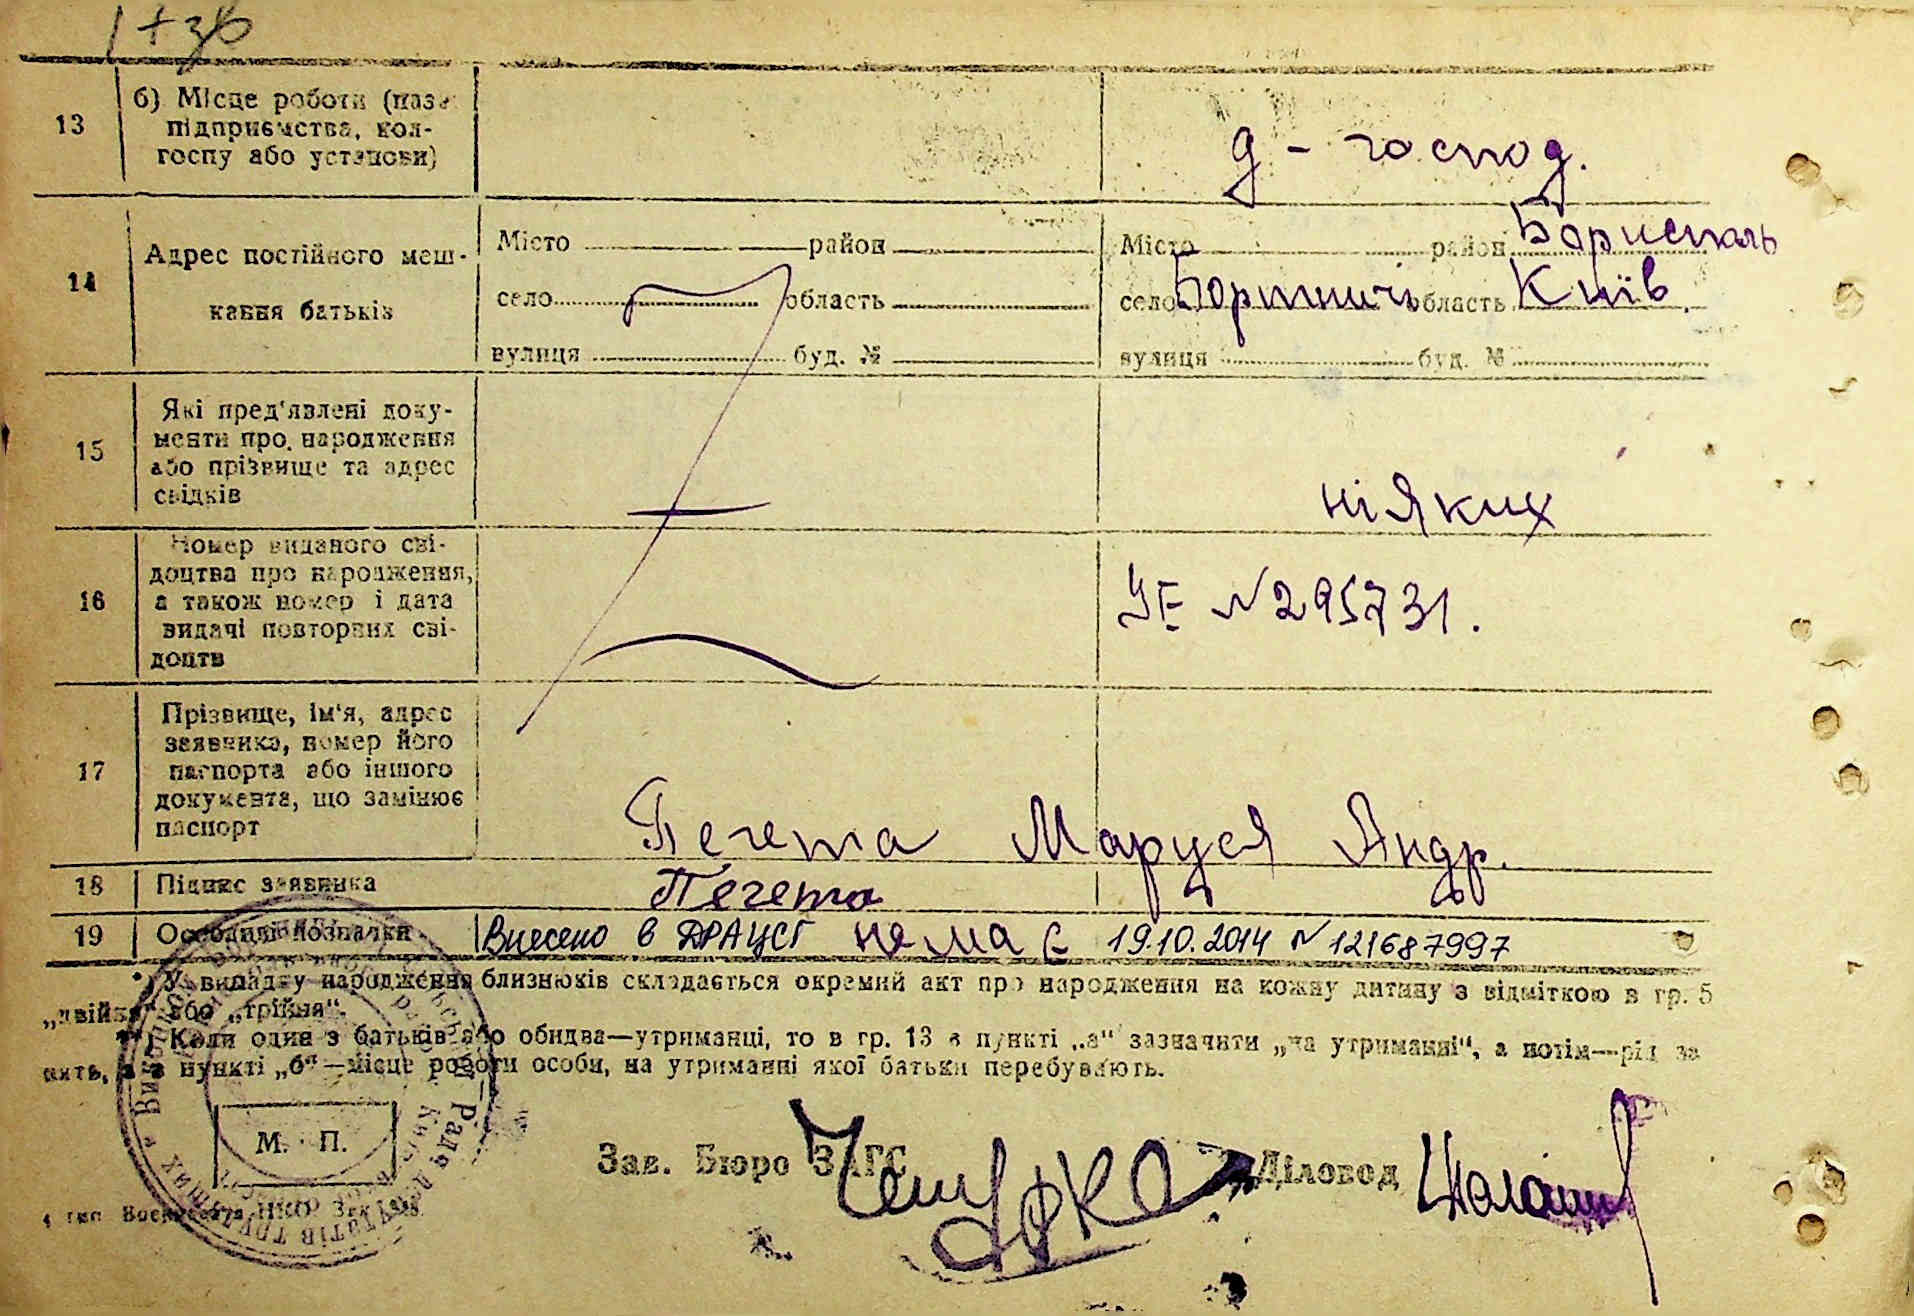 1+3в
13 б) Місце роботи (назв
підприємства, кол-
госпу або установи)
д - господ.
14 Адрес постійного меш-
кання батьків
Місто район
село область
вулиця буд. №
Місто район Бориспаль
село Бортничі область Київ.
вулиця буд. №
15 Які пред'явлені доку-
менти про народження
або прізвище та адрес
свідків
ніяких
16 Номер виданого сві-
доцтва про народження,
а також номер і дата
видачі повторних сві-
доцтв
УЕ №295731.
17 Прізвище, ім'я, адрес
заявника, номер його
паспорта або іншого
документа, що замінює
паспорт
Пегета Маруся Андр.
18 Підпис заявника Пегета
19 Особливі позначки Внесено в ДРАЦСГ немає 19.10.2014 №121687997
*) У випадку народження близнюків складається окремий акт про народження на кожну дитину з відміткою в гр. 5
„двійня" або „трійня".
**) Коли один з батьків або обидва—утриманці, то в гр. 13 в пункті „а" зазначити „на утриманні", а потім—рід за
нять, а в пункті „б"—місце роботи особи, на утриманні якої батьки перебувають.
М. П.
Зав. Бюро ЗАГС Діловод